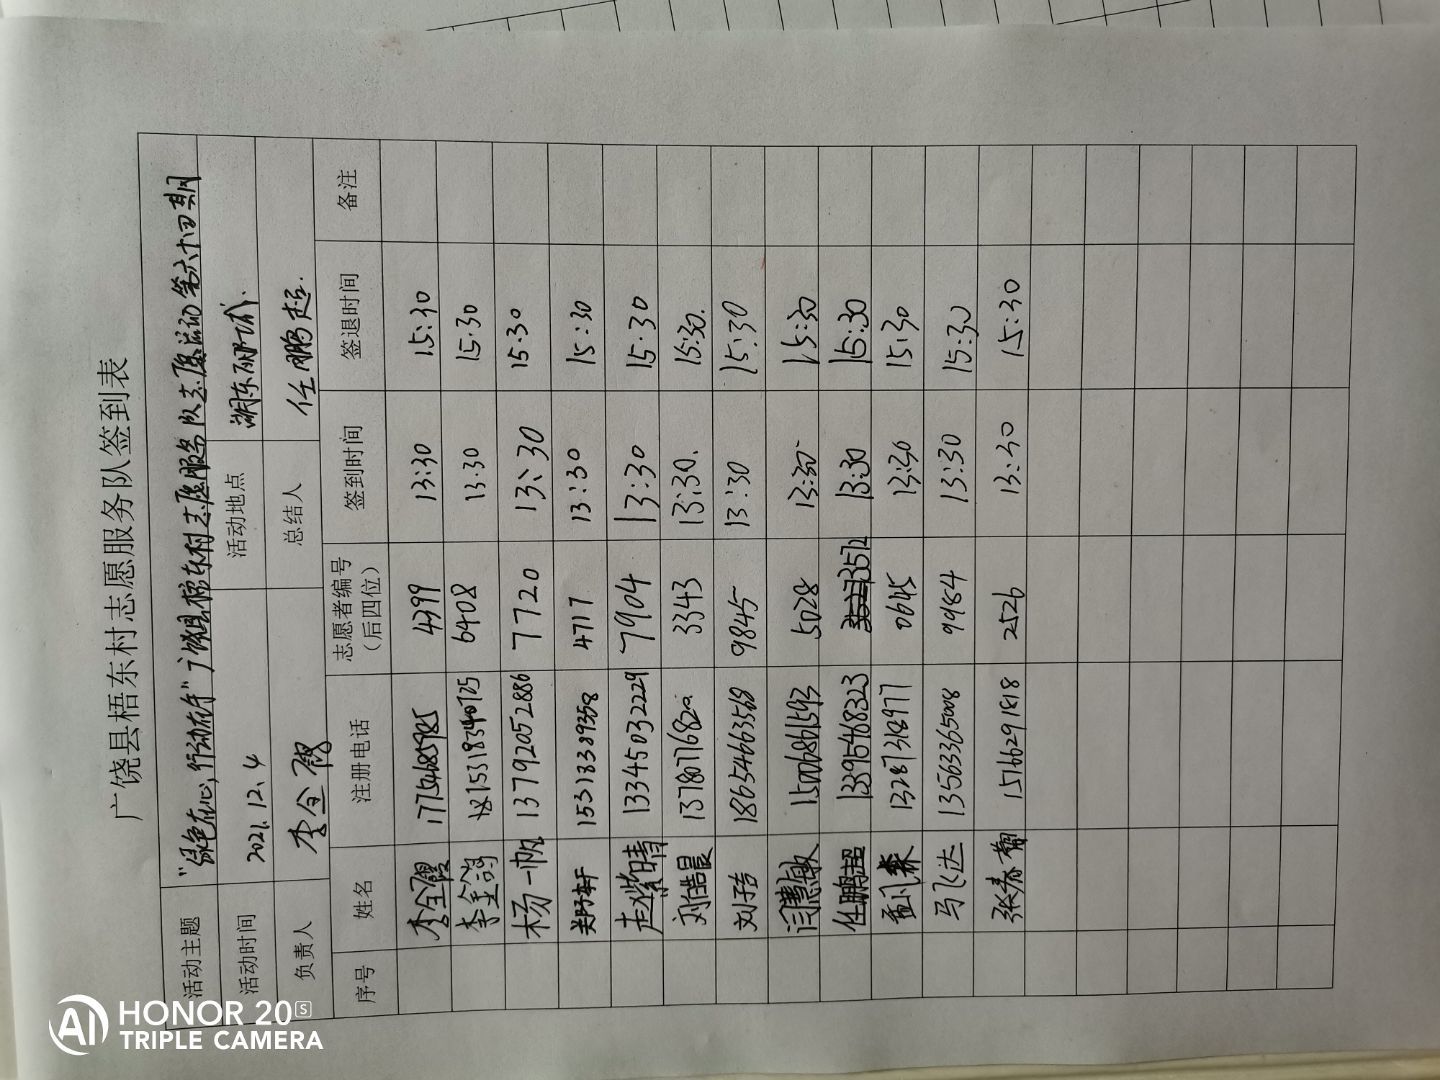 广饶县梧东村志愿服务队签到表
活动主题 "绿色在心,行动在手"广饶县梧东村志愿服务队志愿活动第六十四期
活动时间 2021.12.4 活动地点 湖东丽城.
负责人 李全霞 总结人 任鹏超.
序号 姓名 注册电话 志愿者编号(后四位) 签到时间 签退时间 备注
李全霞 4399 13:30 15:30
李金鸽 6408 13:30 15:30
杨一帆 13792052886 7720 13:30 15:30
15318389358 4717 13:30 15:30
赵紫晴 13345032229 7904 13:30 15:30
刘皓晨 3343 13:30. 15:30.
刘子 18654663569 9845 13:30 15:30
闫慧敏 15006861593 5028 13:30 15:30
任鹏超 13395468323 3572 13:30 15:30
孟凡森 13287318977 0645 13:30 15:30
马飞达 13563365008 9984 13:30 15:30
张春 15166291818 2526 13:30 15:30
HONOR 20S
TRIPLE CAMERA